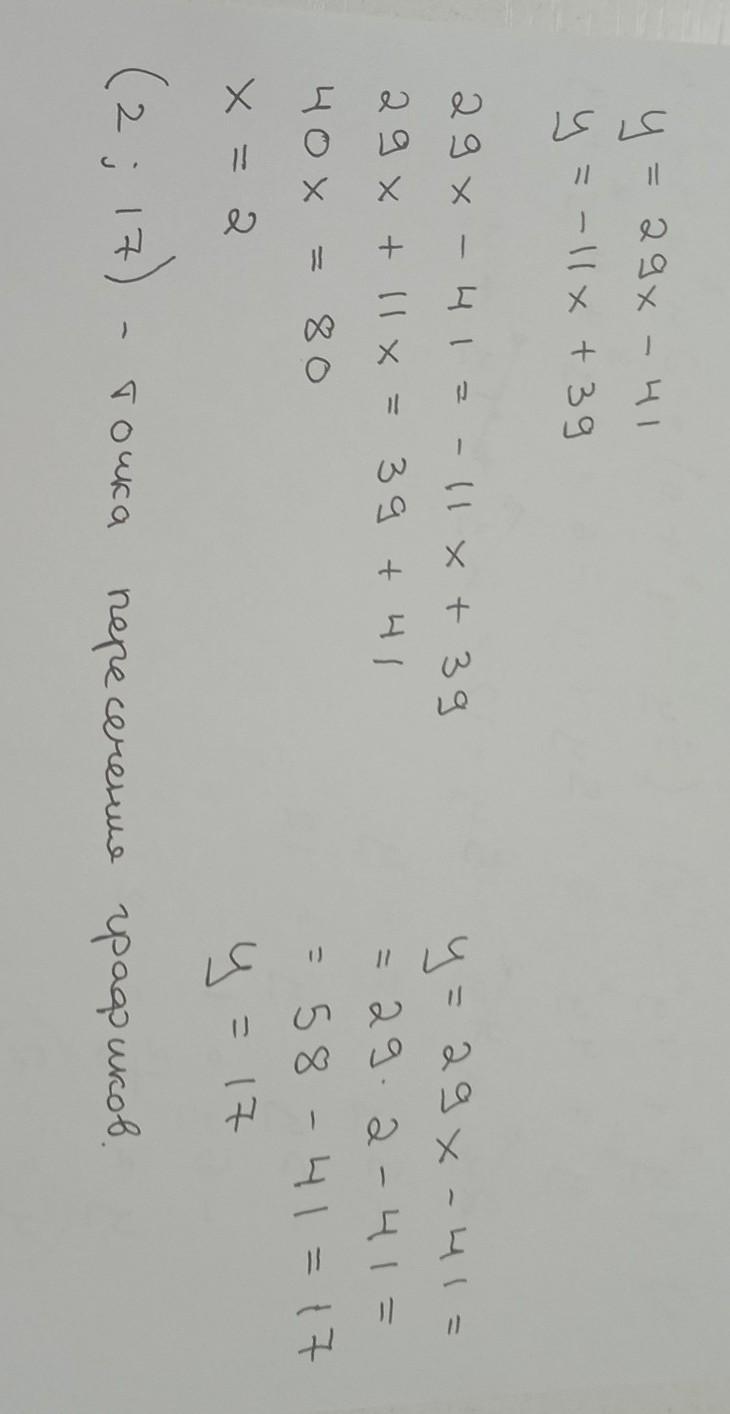 y = 29x - 41
y = -11x + 39
29x - 41 = -11x + 39
29x + 11x = 39 + 41
40x = 80
x = 2
y = 29x - 41 =
= 29 · 2 - 41 =
= 58 - 41 = 17
y = 17
(2; 17) - точка пересечения графиков.